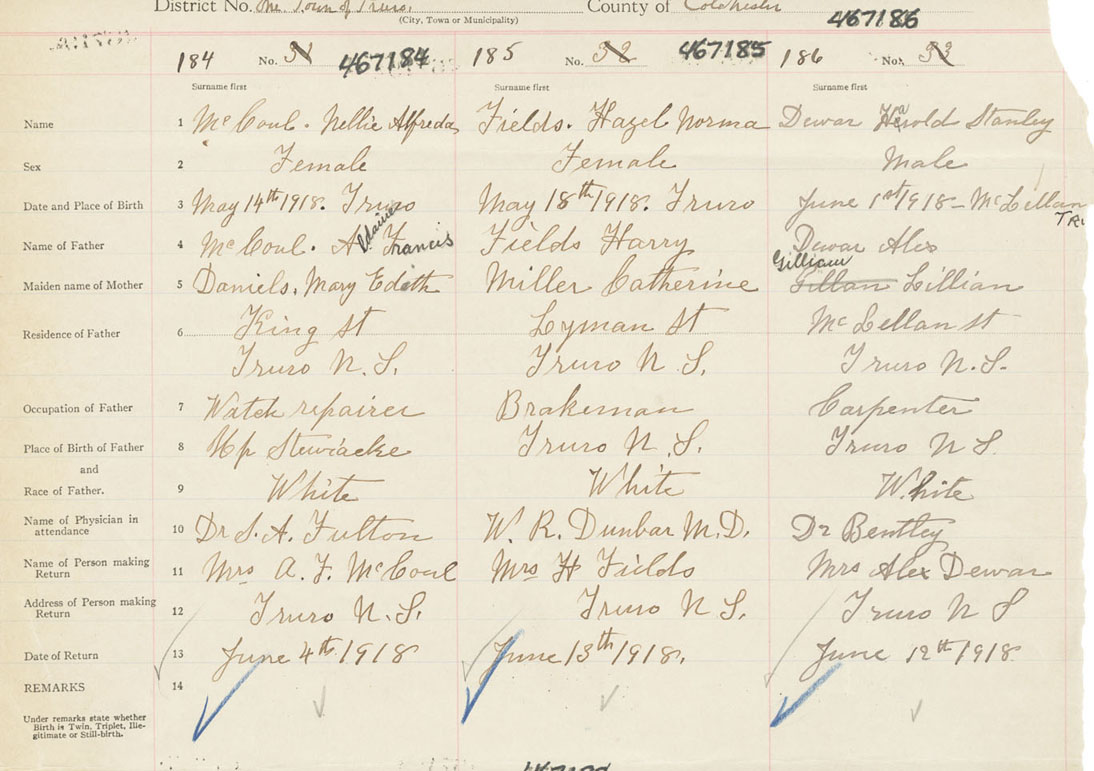 District No. The Town of Truro. County of Colchester
(City, Town or Municipality)
467186
184 No. 31 467184 185 No. 32 467185 186 No. 33
Surname first Surname first Surname first
Name 1 McCoul. Nellie Alfreda Fields. Hazel Norma Dewar Harold Stanley
Sex 2 Female Female Male
Date and Place of Birth 3 May 14th 1918. Truro May 18th 1918. Truro June 1st 1918 - McLellan
Name of Father 4 McCoul. Francis Fields Harry Dewar Alex
Gilliam
Maiden name of Mother 5 Daniels, Mary Edith Miller Catherine Gillan Lillian
Residence of Father 6 King St Lyman St McLellan St
Truro N.S. Truro N.S. Truro N.S.
Occupation of Father 7 Watch repairer Brakeman Carpenter
Place of Birth of Father 8 Up Stewiacke Truro N.S. Truro N S.
and
Race of Father. 9 White White White
Name of Physician in attendance 10 Dr S. A. Fulton W. R. Dunbar M.D. Dr Bentley
Name of Person making Return 11 Mrs A. F. McCoul Mrs H Fields Mrs Alex Dewar
Address of Person making Return 12 Truro N.S. Truro N S. Truro N S
Date of Return 13 June 4th 1918 June 13th 1918. June 12th 1918
REMARKS 14
Under remarks state whether
Birth is Twin, Triplet, Ille-
gitimate or Still-birth.